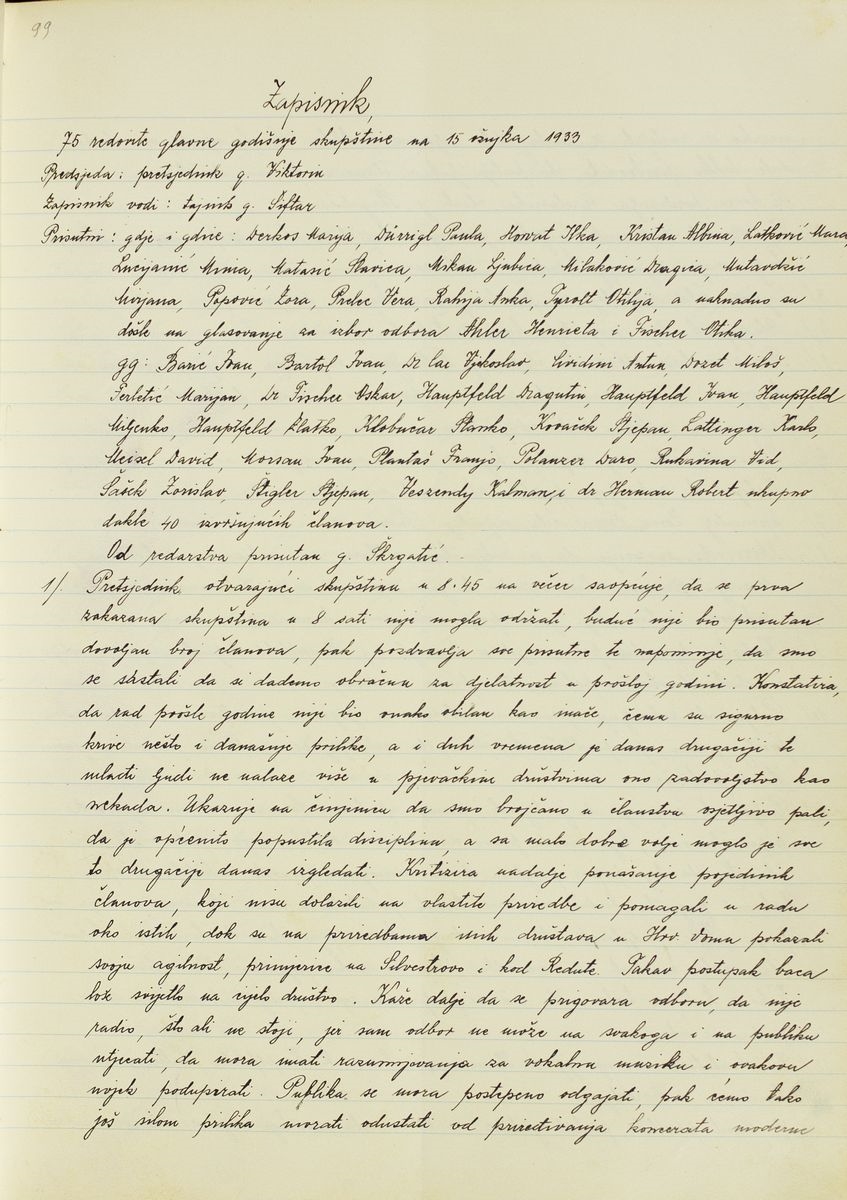 99
Zapisnik,
75 redovite glavne godišnje skupštine na 15 ožujka 1933
Predsjeda: pretsjednik g. Viktorin
Zapisnik vodi: tajnik g. Šiftar
Prisutni: gdje i gdice: Derkos Marija, Dürrigl Paula, Horvat Ilka, Kristan Albina, Latković Mara,
Lucijanić Mima, Matasić Slavica, Mskau Ljubica, Milaković Dragica, Mutavdžić
Mirjana, Popović Zora, Prelec Vera, Rahija Anka, Tyrolt Otilija, a naknadno su
došle na glasovanje za izbor odbora Ahler Henrieta i Fischer Otika.
gg: Barić Ivan, Bartol Ivan, Dr Lac Vjekoslav, Cividini Antun, Dozet Miloš,
Ferletić Marijan, Dr Fischer Oskar, Hauptfeld Dragutin, Hauptfeld Ivan, Hauptfeld
Miljenko, Hauptfeld Zlatko, Klobučar Stanko, Kovaček Stjepan, Lattinger Karlo,
Meisel David, Morsan Ivan, Plantaš Franjo, Polanzer Daro, Rukavina Vid,
Šašek Zorislav, Štigler Stjepan, Veszendy Kalman, i dr Herman Robert ukupno
dakle 40 izvršujućih članova.
Od redarstva prisutan g. Škrgatić.
1/. Pretsjednik otvarajući skupštinu u 8.45 na večer saopćuje, da se prva
zakazana skupština u 8 sati nije mogla održati, buduć nije bio prisutan
dovoljan broj članova, pak pozdravlja sve prisutne te napominje, da smo
se sastali da si dademo obračun za djelatnost u prošloj godini. Konstatira,
da rad prošle godine nije bio onako obilan kao inače, čemu su sigurno
krive nešto i današnje prilike, a i duh vremena je danas drugačiji te
mladi ljudi ne nalaze više u pjevačkim društvima ono zadovoljstvo kao
nekada. Ukazuje na činjenicu da smo brojčano u članstvu osjetljivo pali,
da je općenito popustila disciplina, a sa malo dobre volje moglo je sve
to drugačije danas izgledati. Kritizira nadalje ponašanje pojedinih
članova, koji nisu dolazili na vlastite priredbe i pomagali u radu
oko istih, dok su na priredbama inih društava u Hrv. domu pokazali
svoju agilnost, primjerice na Silvestrovo i kod Redute. Takav postupak baca
loše svijetlo na cijelo društvo. Kaže dalje da se prigovara odboru, da nije
radio, što ali ne stoji, jer sam odbor ne može na svakoga i na publiku
utjecati, da mora imati razumijevanja za vokalnu muziku i ovakovu
uvjek podupirati. Publika se mora postepeno odgajati, pak ćemo tako
još silom prilika morati odustati od priređivanja koncerata moderne